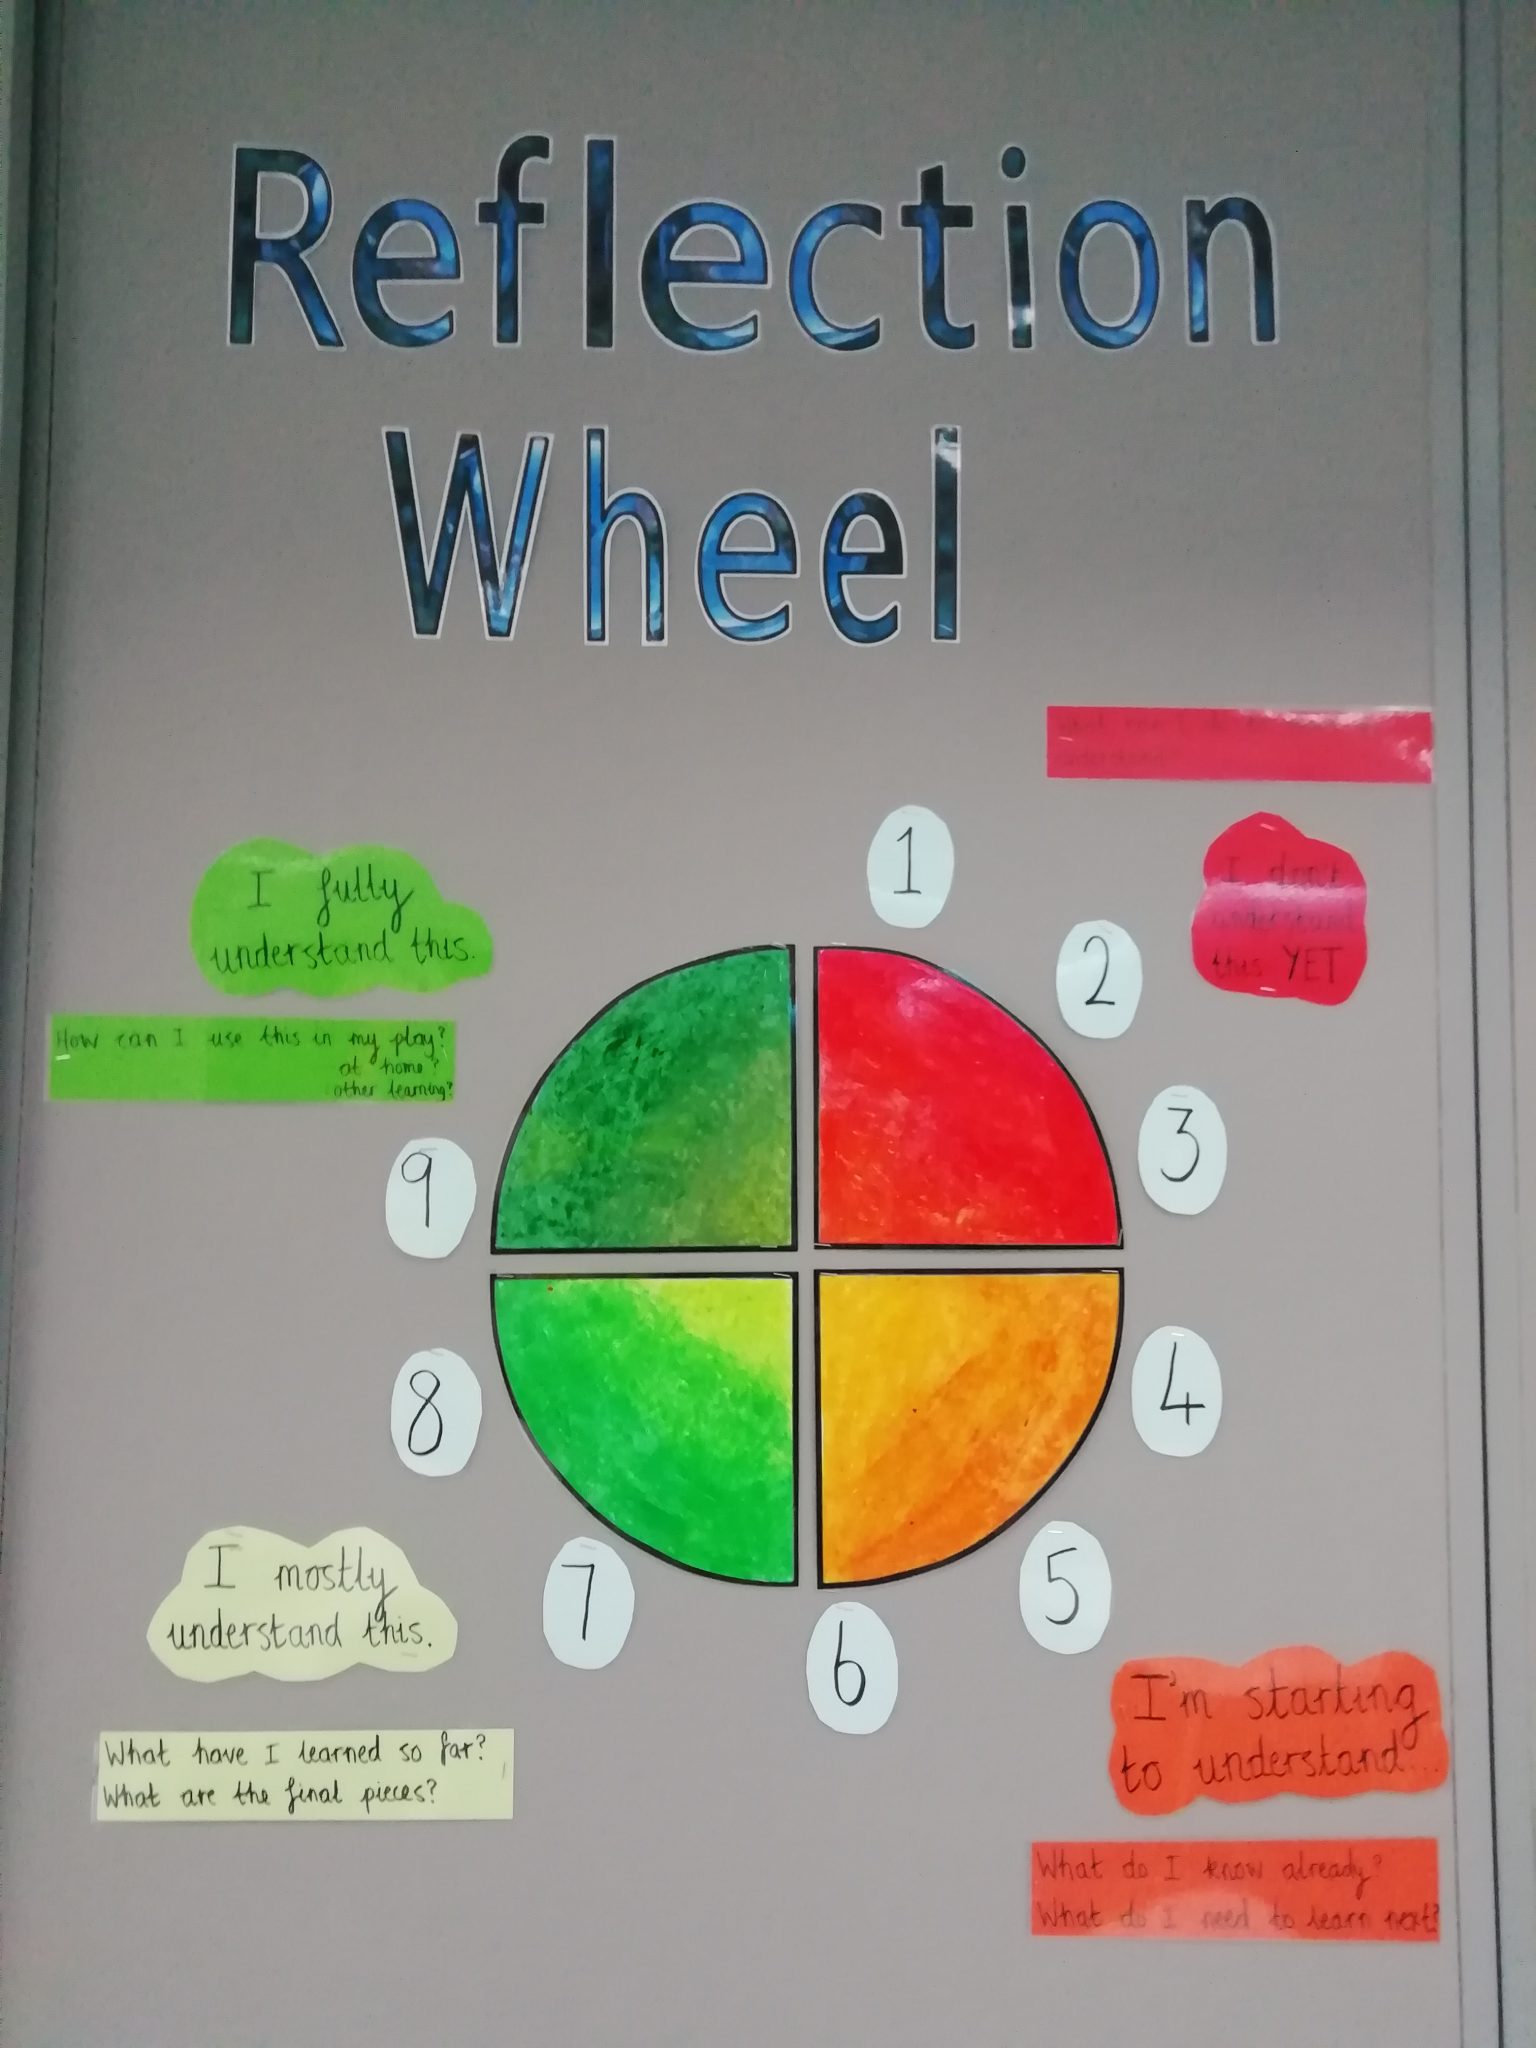 Reflection
Wheel
What can I do to
understand?
1
2
3
4
5
6
7
8
9
I don't
understand
this YET
I'm starting
to understand...
What do I know already?
What do I need to learn next?
I mostly
understand this.
What have I learned so far?
What are the final pieces?
I fully
understand this.
How can I use this in my play?
at home?
other learning?